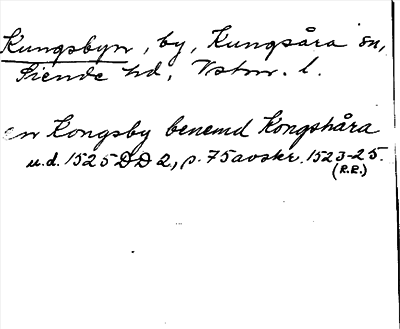 Kungsbyn, by, Kungsåra sn,
Siende hd, Vstm. l.
en Kongsby benemd Kongshåra
u.d. 1525 DD 2, s. 75 avskr. 1523-25.
(R.R.)